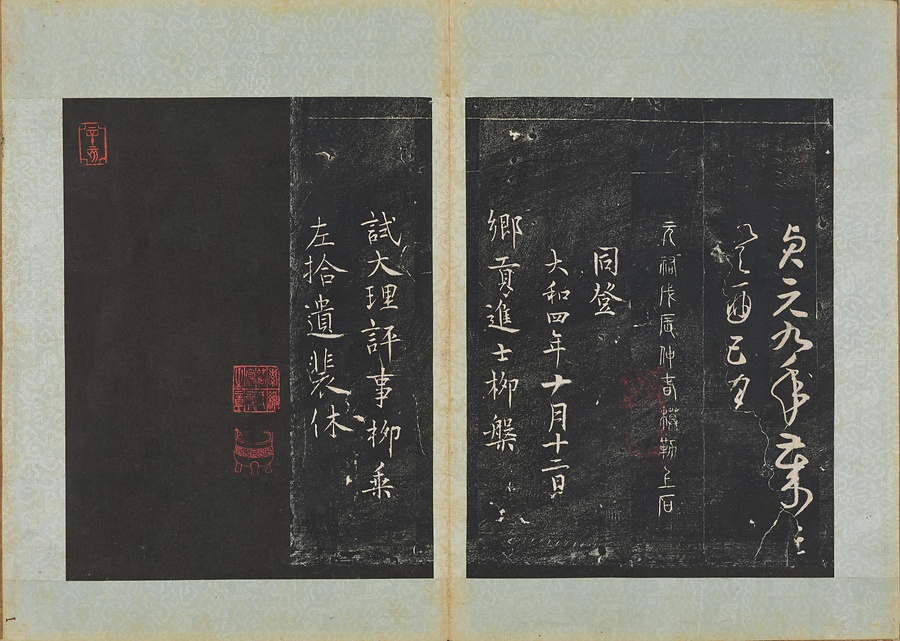 貞元九年歲在
癸酉五月
元祐戊辰仲春模勒上石
同登
大和四年十月十二日
鄉貢進士柳槃
試大理評事柳乘
左拾遺裴休